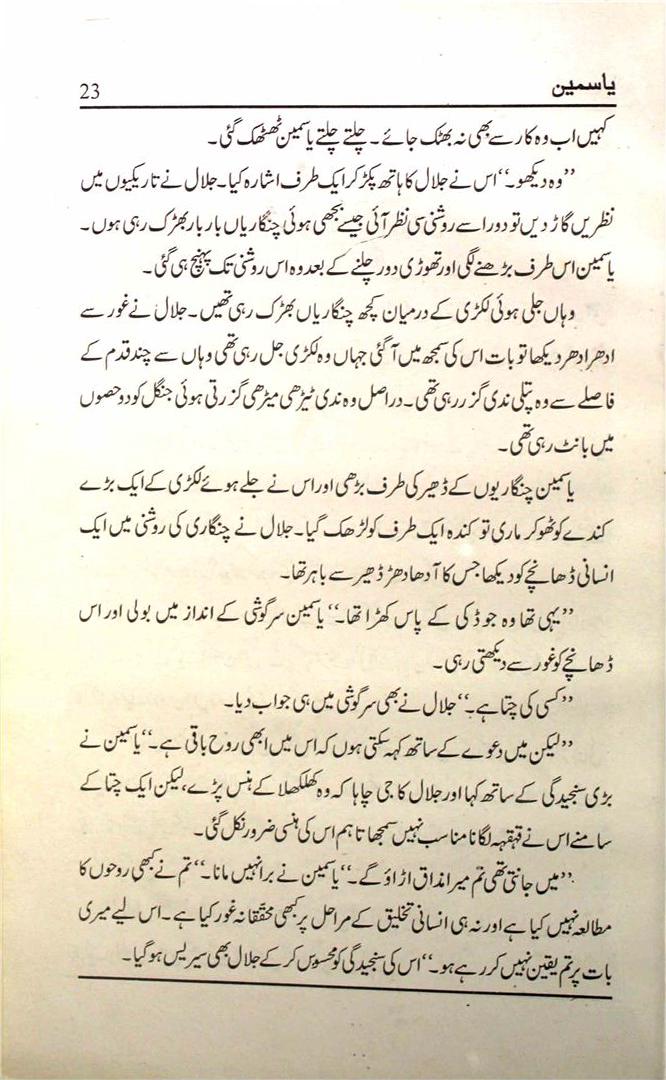 یاسمین
23
کہیں اب وہ کار سے بھی نہ بھٹک جائے۔ چلتے چلتے یاسمین ٹھٹھک گئی۔
”وہ دیکھو۔“ اس نے جلال کا ہاتھ پکڑ کر ایک طرف اشارہ کیا۔ جلال نے تاریکیوں میں
نظریں گاڑ دیں تو دور اسے روشنی سی نظر آئی جیسے بجھی ہوئی چنگاریاں بار بار بھڑک رہی ہوں۔
یاسمین اس طرف بڑھنے لگی اور تھوڑی دور چلنے کے بعد وہ اس روشنی تک پہنچ ہی گئی۔
وہاں جلی ہوئی لکڑی کے درمیان کچھ چنگاریاں بھڑک رہی تھیں۔ جلال نے غور سے
ادھر ادھر دیکھا تو بات اس کی سمجھ میں آ گئی جہاں وہ لکڑی جل رہی تھی وہاں سے چند قدم کے
فاصلے سے وہ پتلی ندی گزر رہی تھی۔ دراصل وہ ندی ٹیڑھی میڑھی گزرتی ہوئی جنگل کو دو حصوں
میں بانٹ رہی تھی۔
یاسمین چنگاریوں کے ڈھیر کی طرف بڑھی اور اس نے جلے ہوئے لکڑی کے ایک بڑے
کندے کو ٹھوکر ماری تو کندہ ایک طرف کو لڑھک گیا۔ جلال نے چنگاری کی روشنی میں ایک
انسانی ڈھانچے کو دیکھا جس کا آدھا دھڑ ڈھیر سے باہر تھا۔
”یہی تھا وہ جو ڈکی کے پاس کھڑا تھا۔“ یاسمین سرگوشی کے انداز میں بولی اور اس
ڈھانچے کو غور سے دیکھتی رہی۔
”کسی کی چتا ہے۔“ جلال نے بھی سرگوشی میں ہی جواب دیا۔
”لیکن میں دعوے کے ساتھ کہہ سکتی ہوں کہ اس میں ابھی روح باقی ہے۔“ یاسمین نے
بڑی سنجیدگی کے ساتھ کہا اور جلال کا جی چاہا کہ وہ کھلکھلا کے ہنس پڑے، لیکن ایک چتا کے
سامنے اس نے قہقہہ لگانا مناسب نہیں سمجھا تاہم اس کی ہنسی ضرور نکل گئی۔
”میں جانتی تھی تم میرا مذاق اڑاؤ گے۔“ یاسمین نے برا نہیں مانا۔ ”تم نے کبھی روحوں کا
مطالعہ نہیں کیا ہے اور نہ ہی انسانی تخلیق کے مراحل پر کبھی محققانہ غور کیا ہے۔ اس لیے میری
بات پر تم یقین نہیں کر رہے ہو۔“ اس کی سنجیدگی کو محسوس کر کے جلال بھی سیریس ہو گیا۔